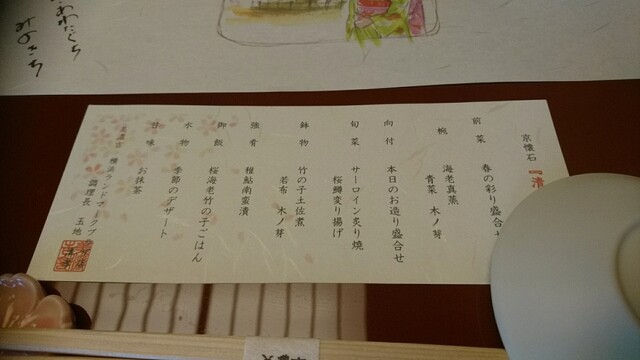 みのきち
京懐石
前菜 春の彩り盛合せ
椀 海老真蒸
青菜 木ノ芽
向付 本日のお造り盛合せ
旬菜 サーロイン炙り焼
桜鱒変り揚げ
鉢物 竹の子土佐煮
若布 木ノ芽
強肴 稚鮎南蛮漬
御飯 桜海老竹の子ごはん
水物 季節のデザート
甘味 お抹茶
美濃吉 横浜ランドマークプラ
調理長 玉地